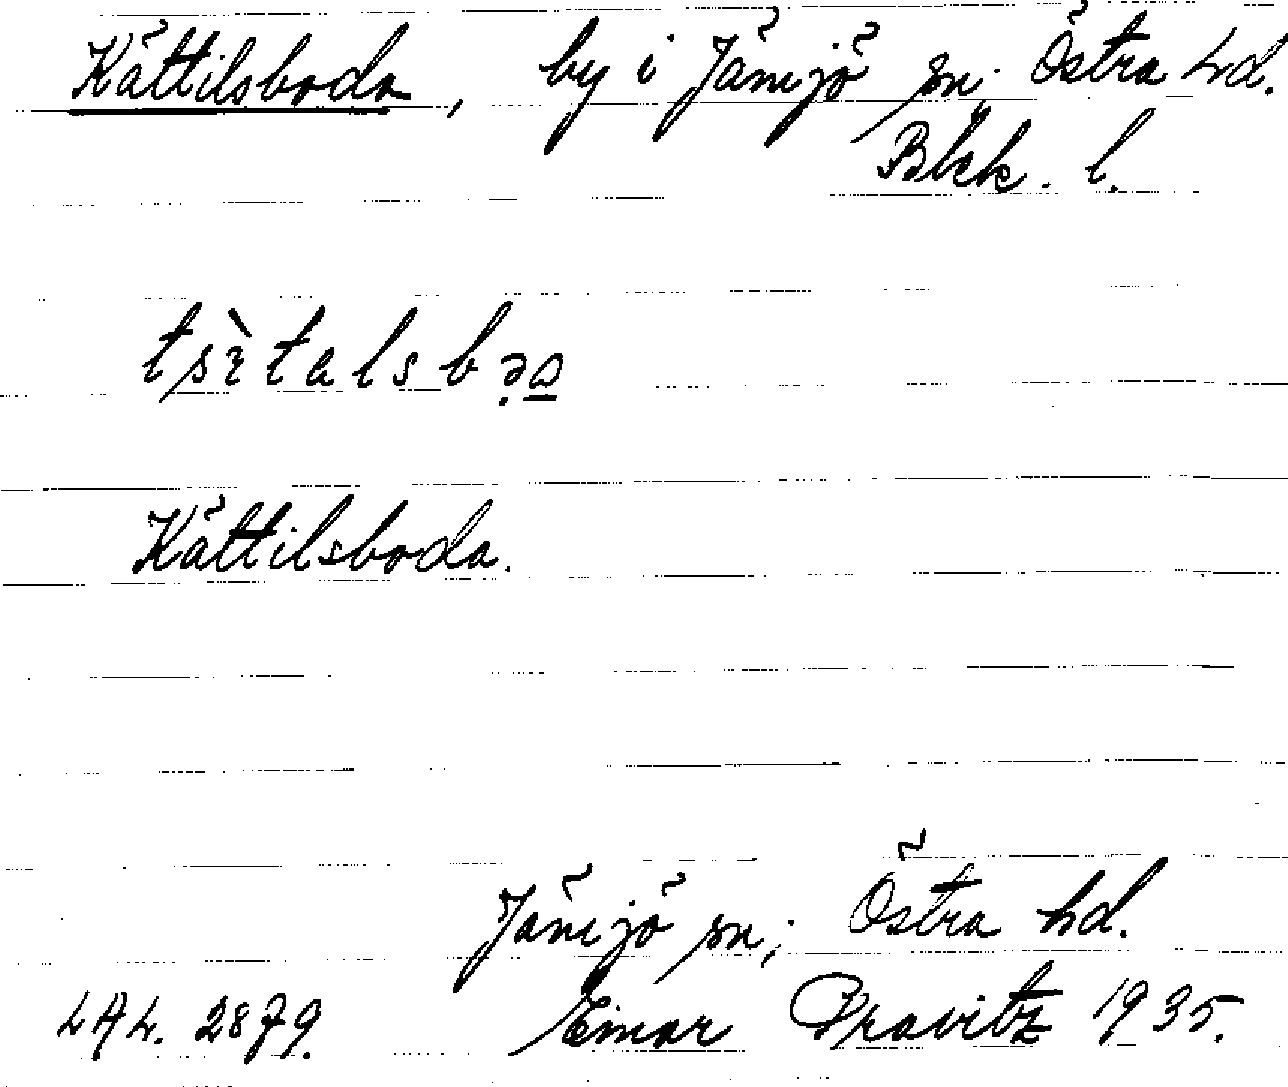 Kättilsboda, by i Jämjö sn. Östra hd.
Blek. l.
Kättilsboda.
Jämjö sn; Östra hd.
LAL. 2879. Einar Pravitz 1935.